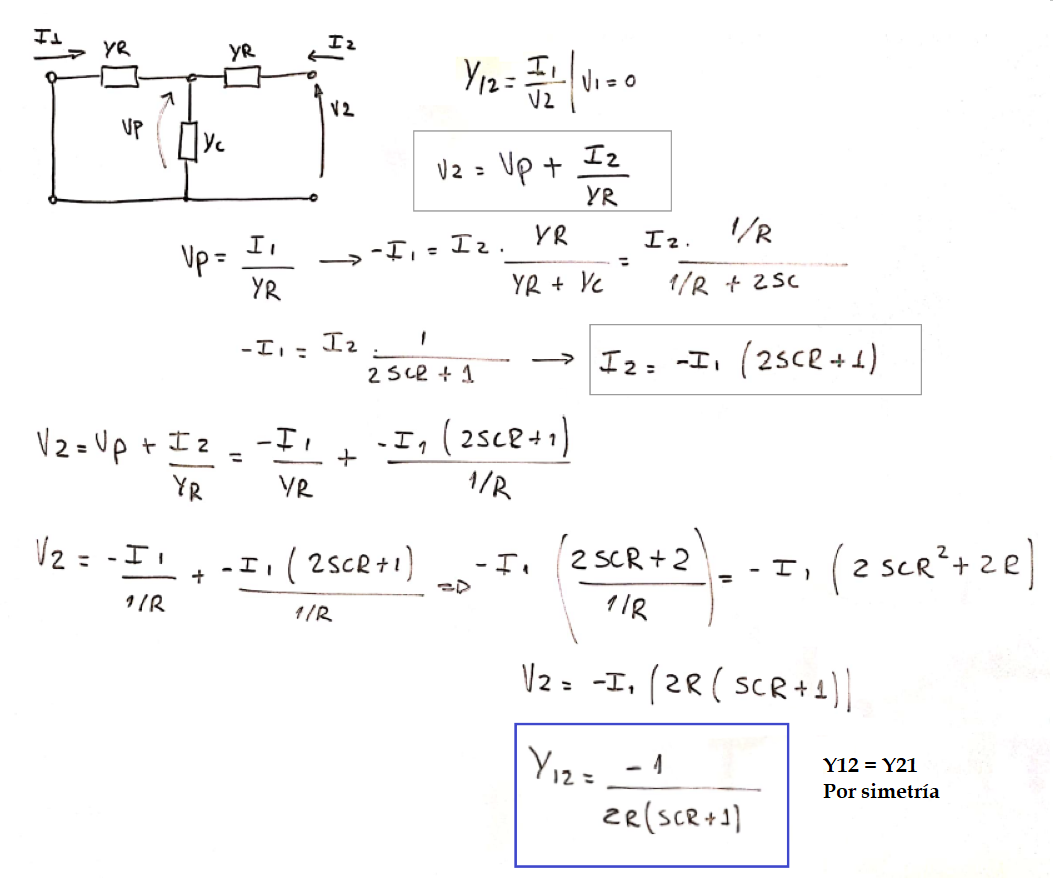 I1 YR YR I2
Y12 = I1/V2 | V1 = 0
VP Yc V2
V2 = Vp + I2/YR
Vp = I1/YR → -I1 = I2 . YR/(YR + Yc) = I2 . (1/R)/(1/R + 2SC)
-I1 = I2 . 1/(2SCR + 1) → I2 = -I1 (2SCR + 1)
V2 = Vp + I2/YR = -I1/YR + -I1 (2SCR + 1)/(1/R)
V2 = -I1/(1/R) + -I1 (2SCR + 1)/(1/R) => -I1 ((2SCR + 2)/(1/R)) = -I1 (2SCR² + 2R)
V2 = -I1 (2R (SCR + 1))
Y12 = -1/(2R(SCR + 1))
Y12 = Y21
Por simetría